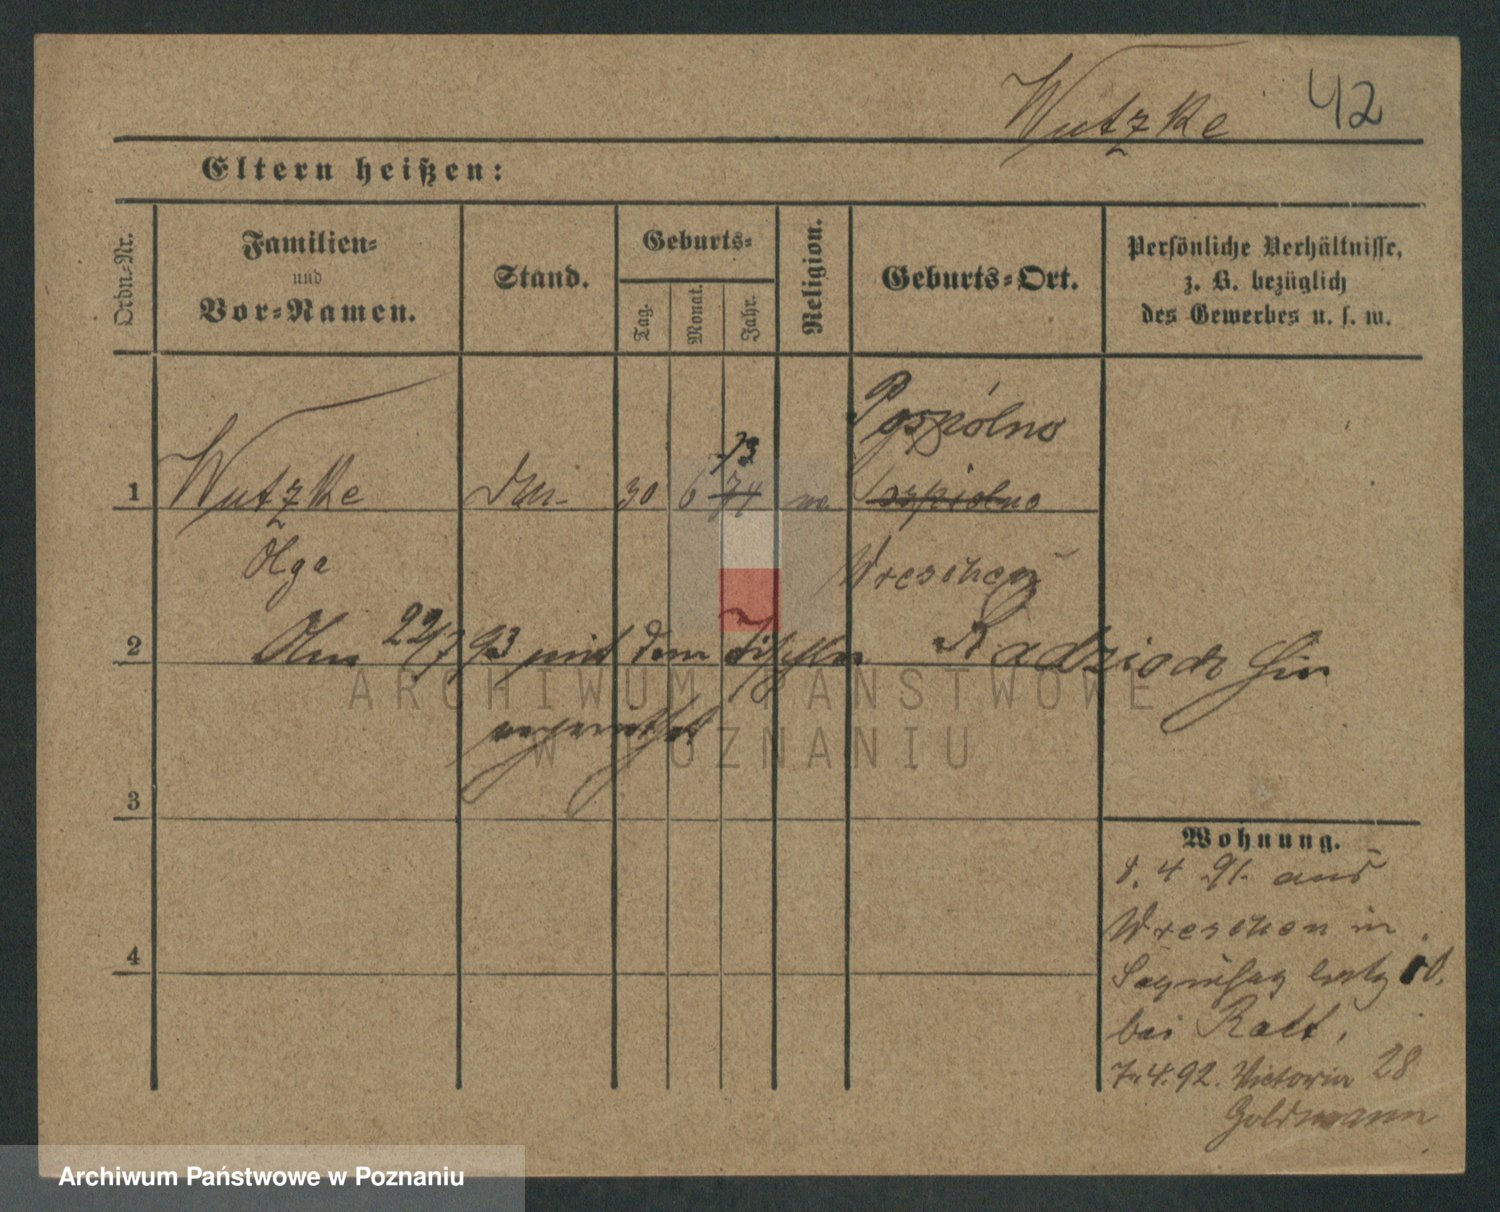 Wutzke 42
Eltern heißen:
Ordn.-Nr.
Familien-
und
Vor-Namen.
Stand.
Geburts-
Tag.
Monat.
Jahr.
Religion.
Geburts-Ort.
Persönliche Verhältnisse,
z. B. bezüglich
des Gewerbes u. s. w.
Pospólno
73
1 Wutzke 30 6 74
Olga Wreschen
2 22/7 93 mit dem Tischler Radzioch hier
verheirathet
ARCHIWUM PAŃSTWOWE
W POZNANIU
3
Wohnung.
8. 4 91. aus
Wreschen in
4
bei Ratt.
7.4.92. Victoria 28
Goldmann
Archiwum Państwowe w Poznaniu